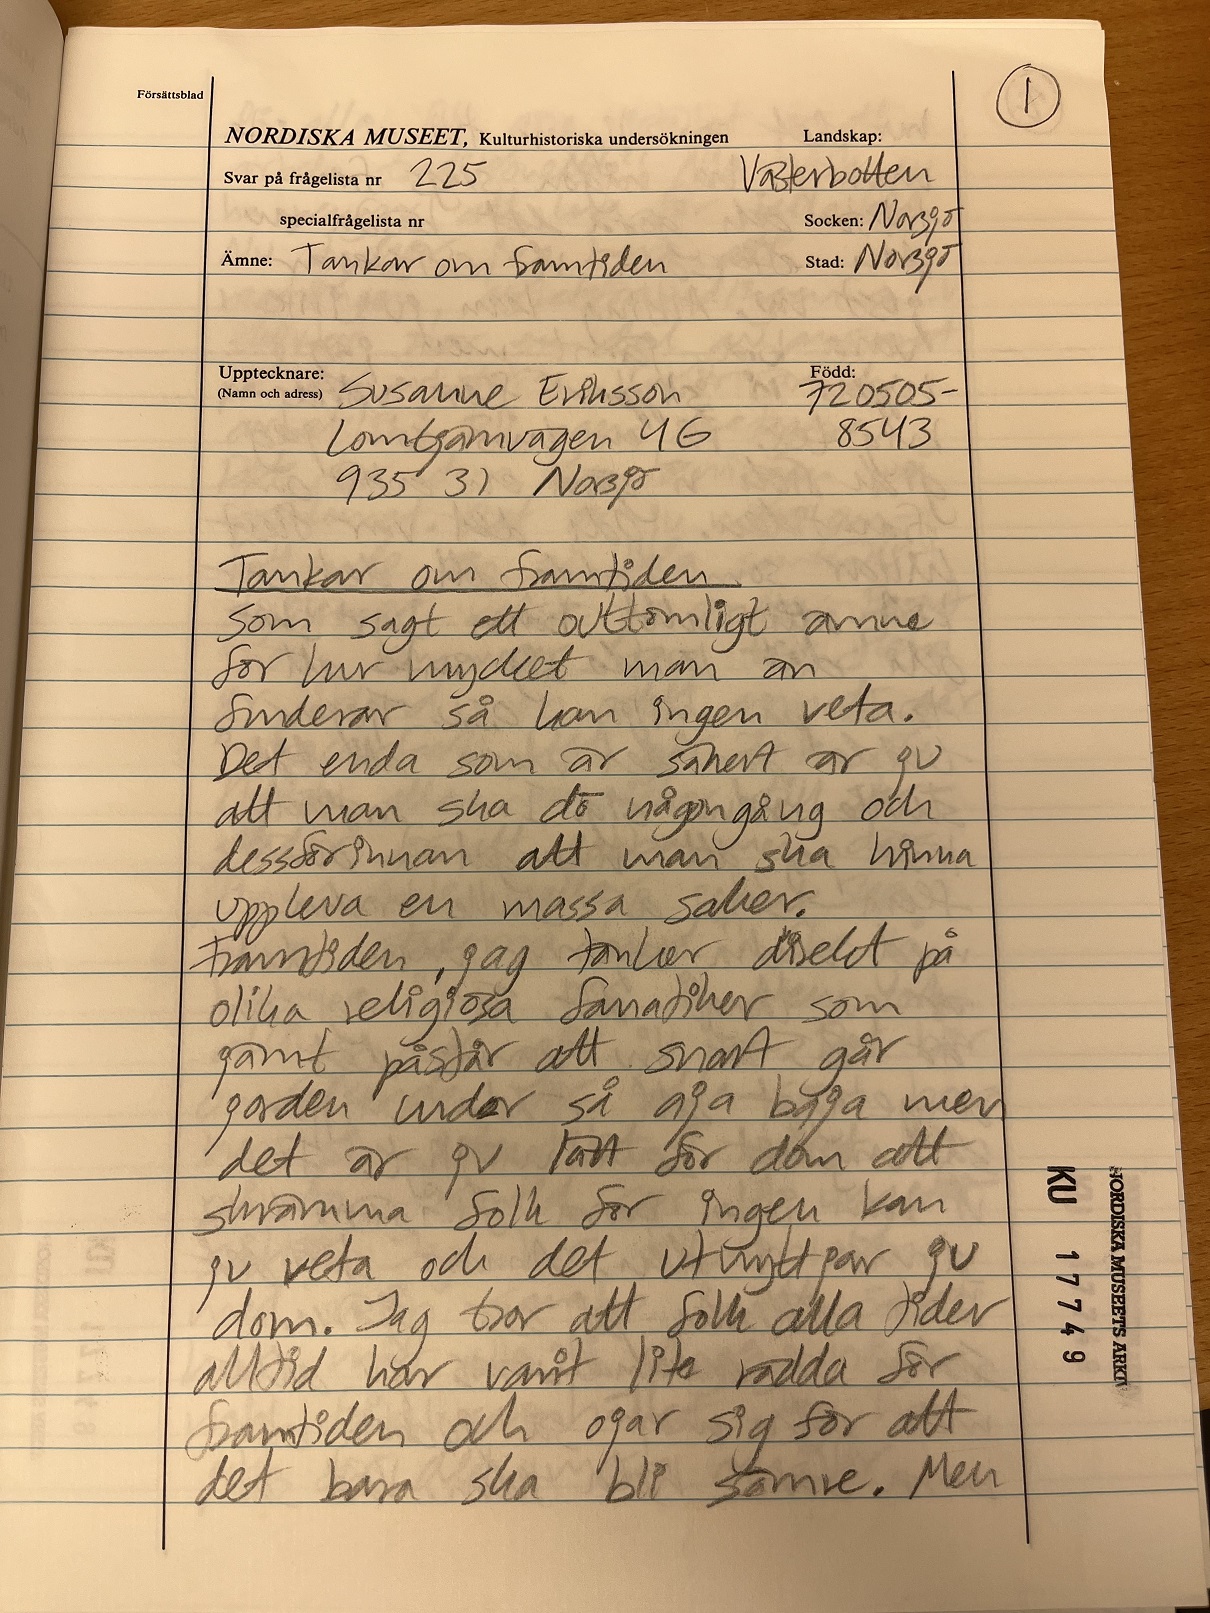 1
Försättsblad
NORDISKA MUSEET, Kulturhistoriska undersökningen
Landskap:
Västerbotten
Svar på frågelista nr 225
specialfrågelista nr
Socken: Norsjö
Ämne: Tankar om framtiden
Stad: Norsjö
Upptecknare:
(Namn och adress)
Susanne Eriksson
Lomtjärnvägen 4G
935 31 Norsjö
Född:
720505-
8543
Tankar om framtiden
Som sagt ett outtömligt ämne
för hur mycket man än
funderar så kan ingen veta.
Det enda som är säkert är ju
att man ska dö någongång och
dessförinnan att man ska hinna
uppleva en massa saker.
Framtiden, jag tänker direkt på
olika religiösa fanatiker som
jämt påstår att snart går
jorden under så aja baja men
det är ju lätt för dom att
skrämma folk för ingen kan
ju veta och det utnyttjar ju
dom. Jag tror att folk alla tider
alltid har varit lite rädda för
framtiden och ojar sig för att
det bara ska bli sämre. Men
KU 17749
NORDISKA MUSEETS ARKIV